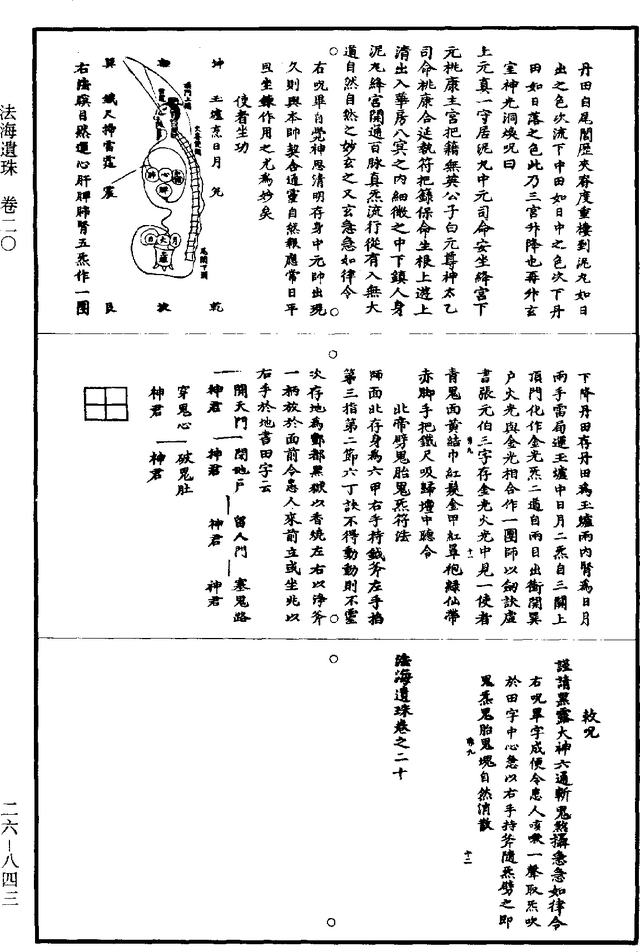 法海遺珠 卷二〇
二六—八四三
丹田自尾閭歷夾脊度重樓到泥丸如日
出之色次流下中田如日中之色次下丹
田如日落之色此乃三宮升降也再升玄
室神光洞煥呪曰
上元真一守居泥丸中元司命安坐絳宮下
元桃康主宮把籍無英公子白元尊神太乙
司命桃康合延執符把籙保命生根上遊上
清出入華房八冥之內細微之中下鎮人身
泥丸絳宮開通百脉真炁流行從有入無大
道自然自然之妙玄之又玄急急如律令
右呪畢自覺神思清明存身中元帥出現
久則與本師契合通靈自然報應常日平
旦坐鍊作用之尤為妙矣
使者坐功
坤 玉爐烹日月 兌 乾
離 坎
巽 鐵尺掃雷霆 震 艮
尾閭下關
日 火 月
右法瞑目然運心肝脾肺腎五炁作一團
下降丹田存丹田為玉爐兩內腎為日月
兩手雷局運玉爐中日月二炁自三關上
頂門化作金光炁二道自兩目出衝開巽
戶火光與金光相合作一團師以劒訣虛
書張元伯三字存金光火光中見一使者
青鬼面黃結巾紅髮金甲紅單袍綠仙帶
赤脚手把鐵尺吸歸壇中聽令
北帝劈鬼胎鬼炁符法
師面北存身為六甲右手持鉞斧左手掐
第三指第二節六丁訣不得動動則不靈
次存地為酆都黑獄以香燒左右以淨斧
一柄放於面前令患人來前立或坐兆以
右手於地書田字云
開天門 閉地戶 留人門 塞鬼路
神君 神君 神君 神君
穿鬼心 破鬼肚
神君 神君
敕呪
謹請黑露大神六通斬鬼煞攝急急如律令
右呪畢字成便令患人咳嗽一聲取炁吹
於田字中心急以右手持斧隨炁劈之即
鬼炁鬼胎鬼塊自然消散
法海遺珠卷之二十